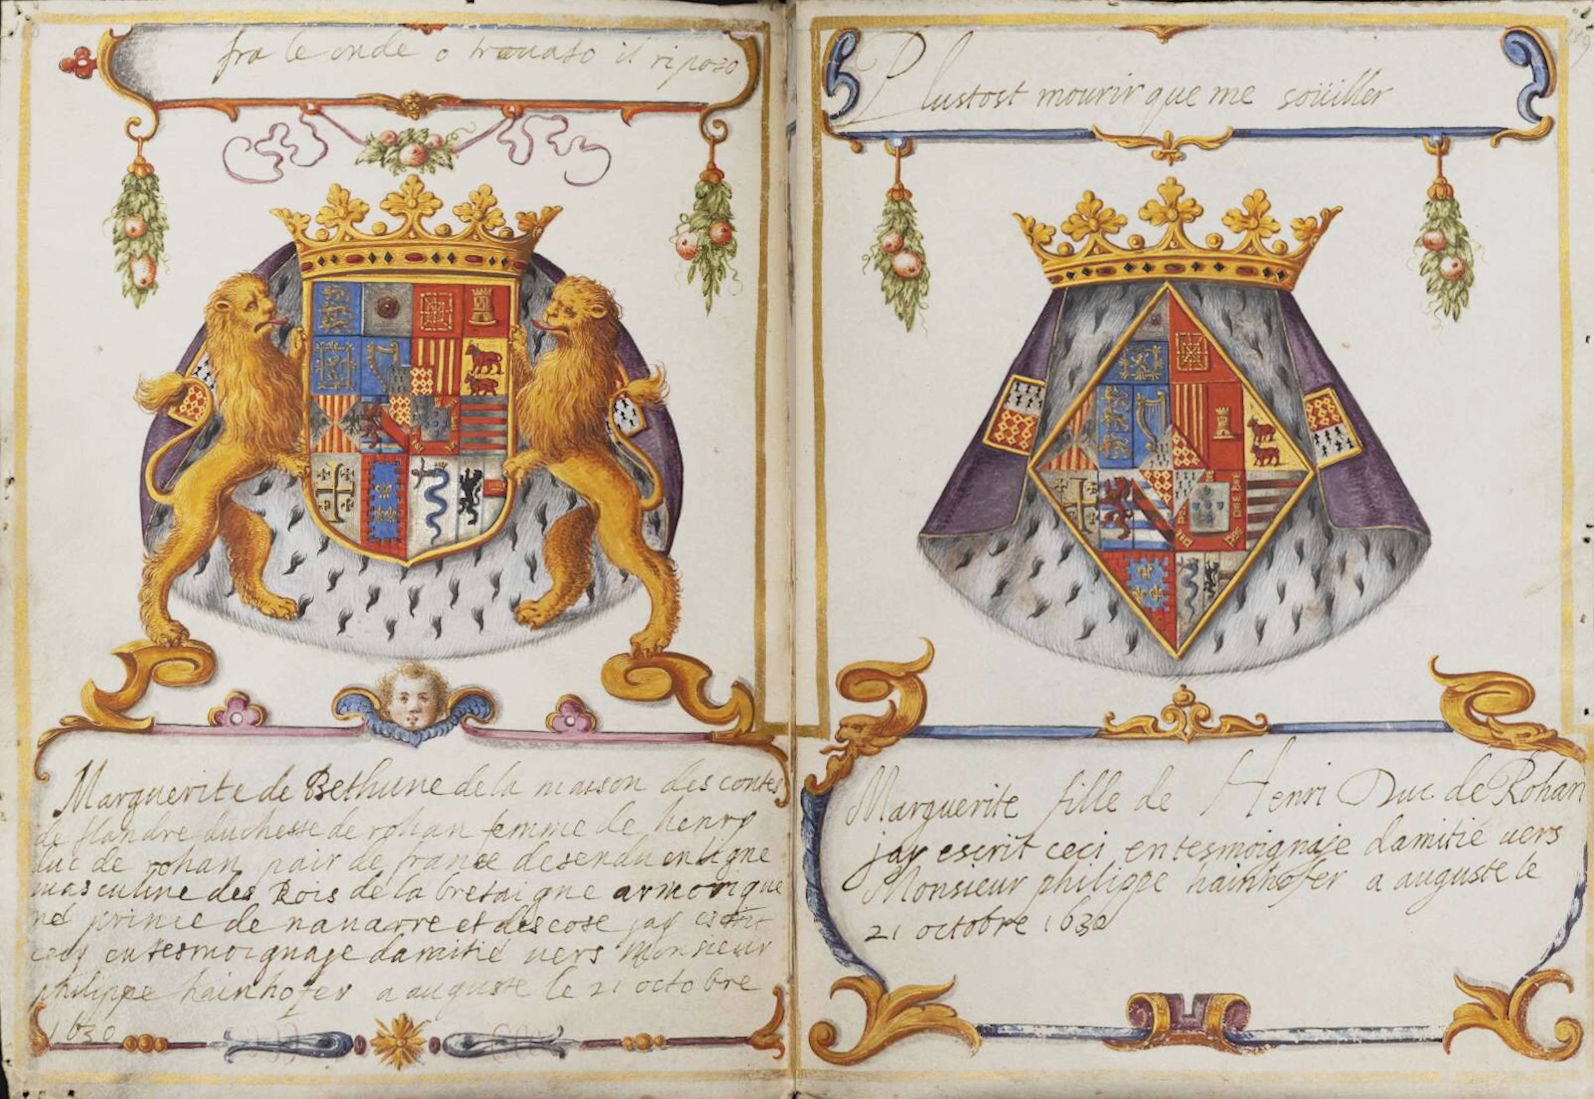 fra le onde o trovato il riposo
Marguerite de Bethune de la maison des contes
de flandre duchesse de rohan femme de henry
duc de rohan pair de france desendu en ligne
masculine des Rois de la bretaigne armorique
né prince de navarre et descose jay escrit
cecy en tesmoignage damitié vers Monsieur
philippe hainhofer a auguste le 21 octobre
1630
Plustost mourir que me soüiller
Marguerite fille de Henri Duc de Rohan
jay escrit ceci en tesmoignaje damitié vers
Monsieur philippe hainhofer a auguste le
21 octobre 1630